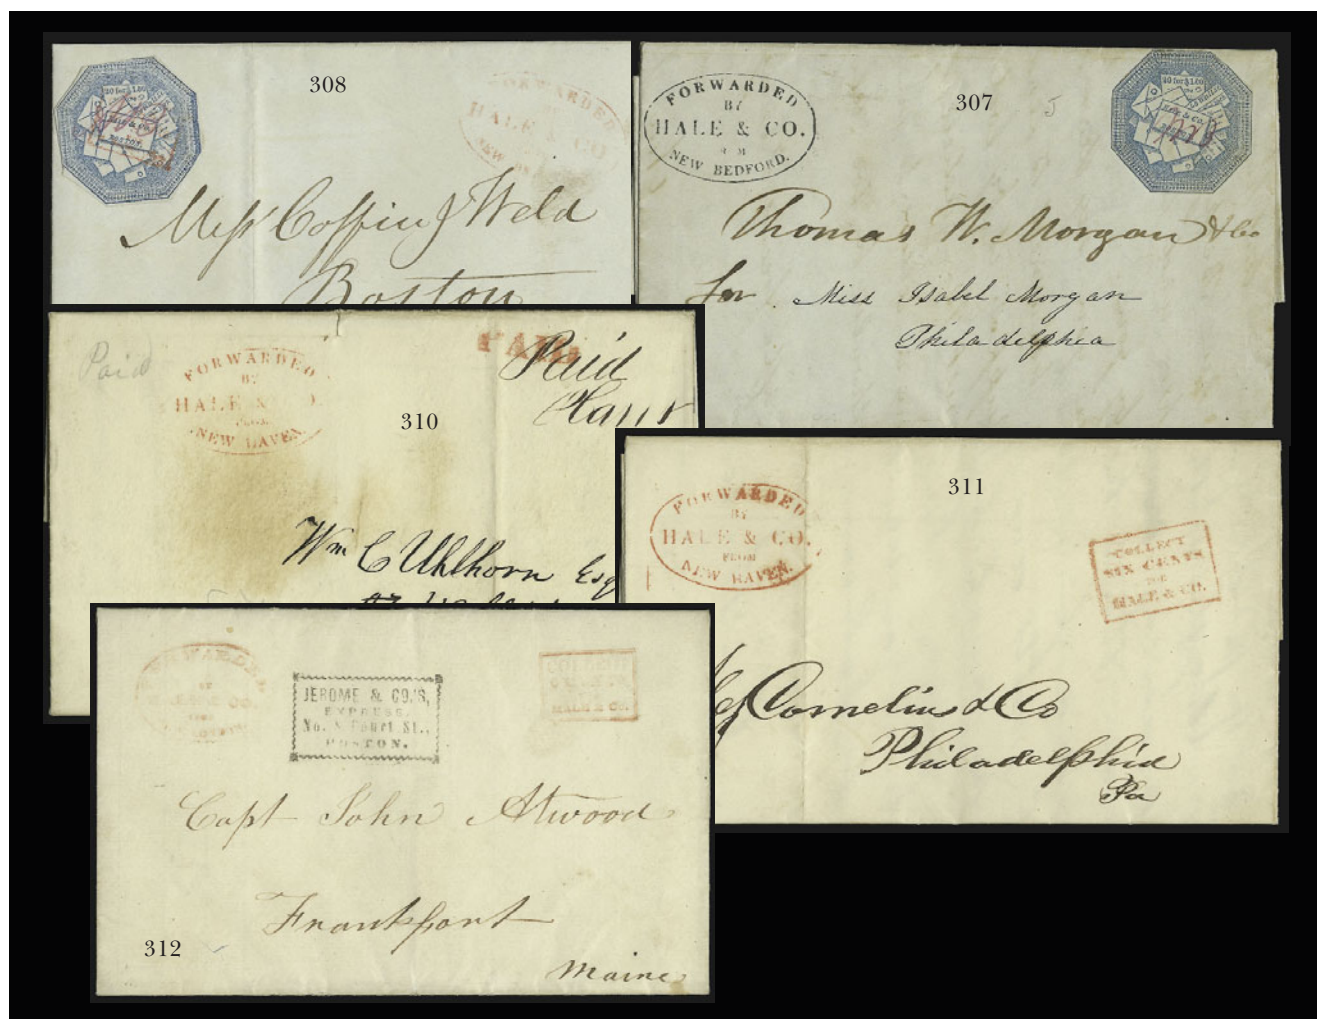 308
FORWARDED
HALE & CO
NEW
Mess Coffin & Weld
Boston
FORWARDED
BY
HALE & CO.
FROM
NEW BEDFORD.
307
5
20 for $1.00
HALE & Co.
BOSTON
Thomas W. Morgan & Co
For Miss Isabel Morgan
Philadelphia
Paid
FORWARDED
BY
HALE & CO.
FROM
NEW HAVEN.
PAID
Paid
310
Wm C Uhlhorn Esq
FORWARDED
BY
HALE & CO.
FROM
NEW HAVEN.
311
COLLECT
SIX CENTS
FOR
HALE & CO.
Cornelius & Co
Philadelphia
Pa
FORWARDED
BY
HALE & CO.
FROM
JEROME & CO.'S,
EXPRESS,
No. 8 Court St.,
BOSTON.
COLLECT
HALE & CO.
Capt John Atwood
Frankfort
Maine
312